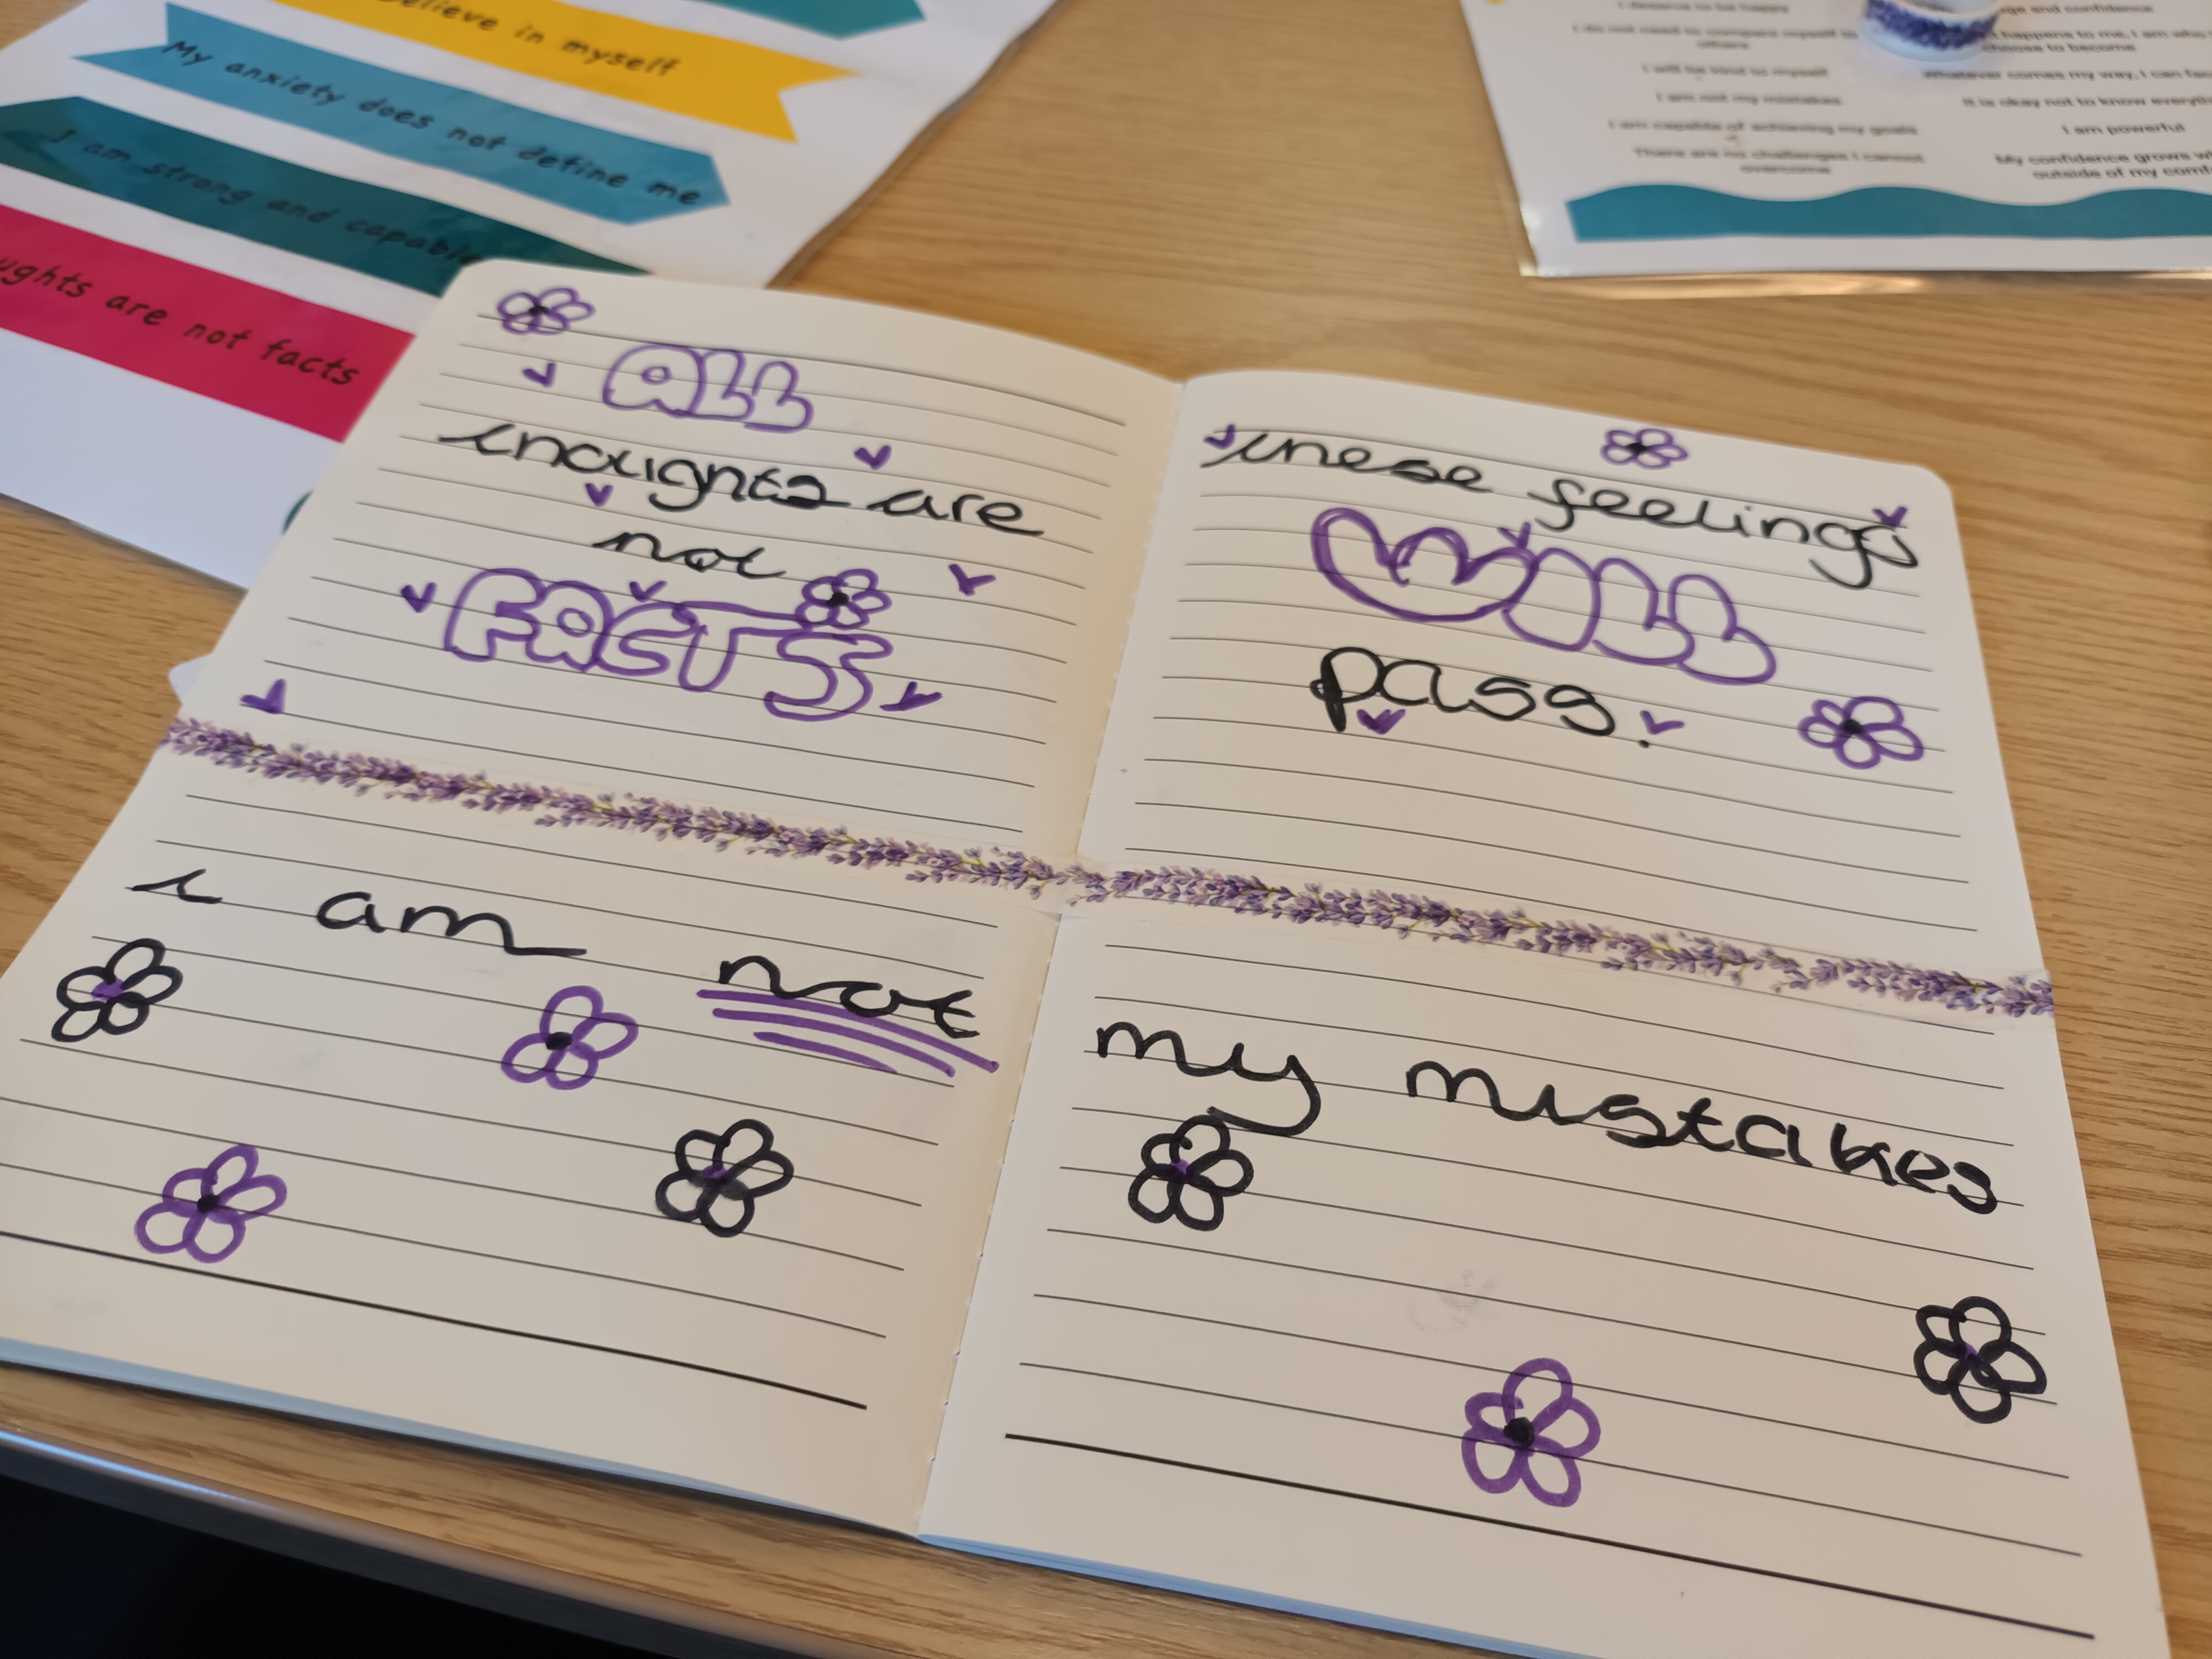 believe in myself
My anxiety does not define me
I am strong and capable
ughts are not facts
I deserve to be happy
I do not need to compare myself to
others
I will be kind to myself
I am not my mistakes
I am capable of achieving my goals
There are no challenges I cannot
overcome
and confidence
happens to me, I am who I
choose to become
Whatever comes my way, I can
It is okay not to know
I am powerful
My confidence grows
outside of my
ALL
thoughts are
not
FACTS
these feelings
WILL
pass.
i am not
my mistakes